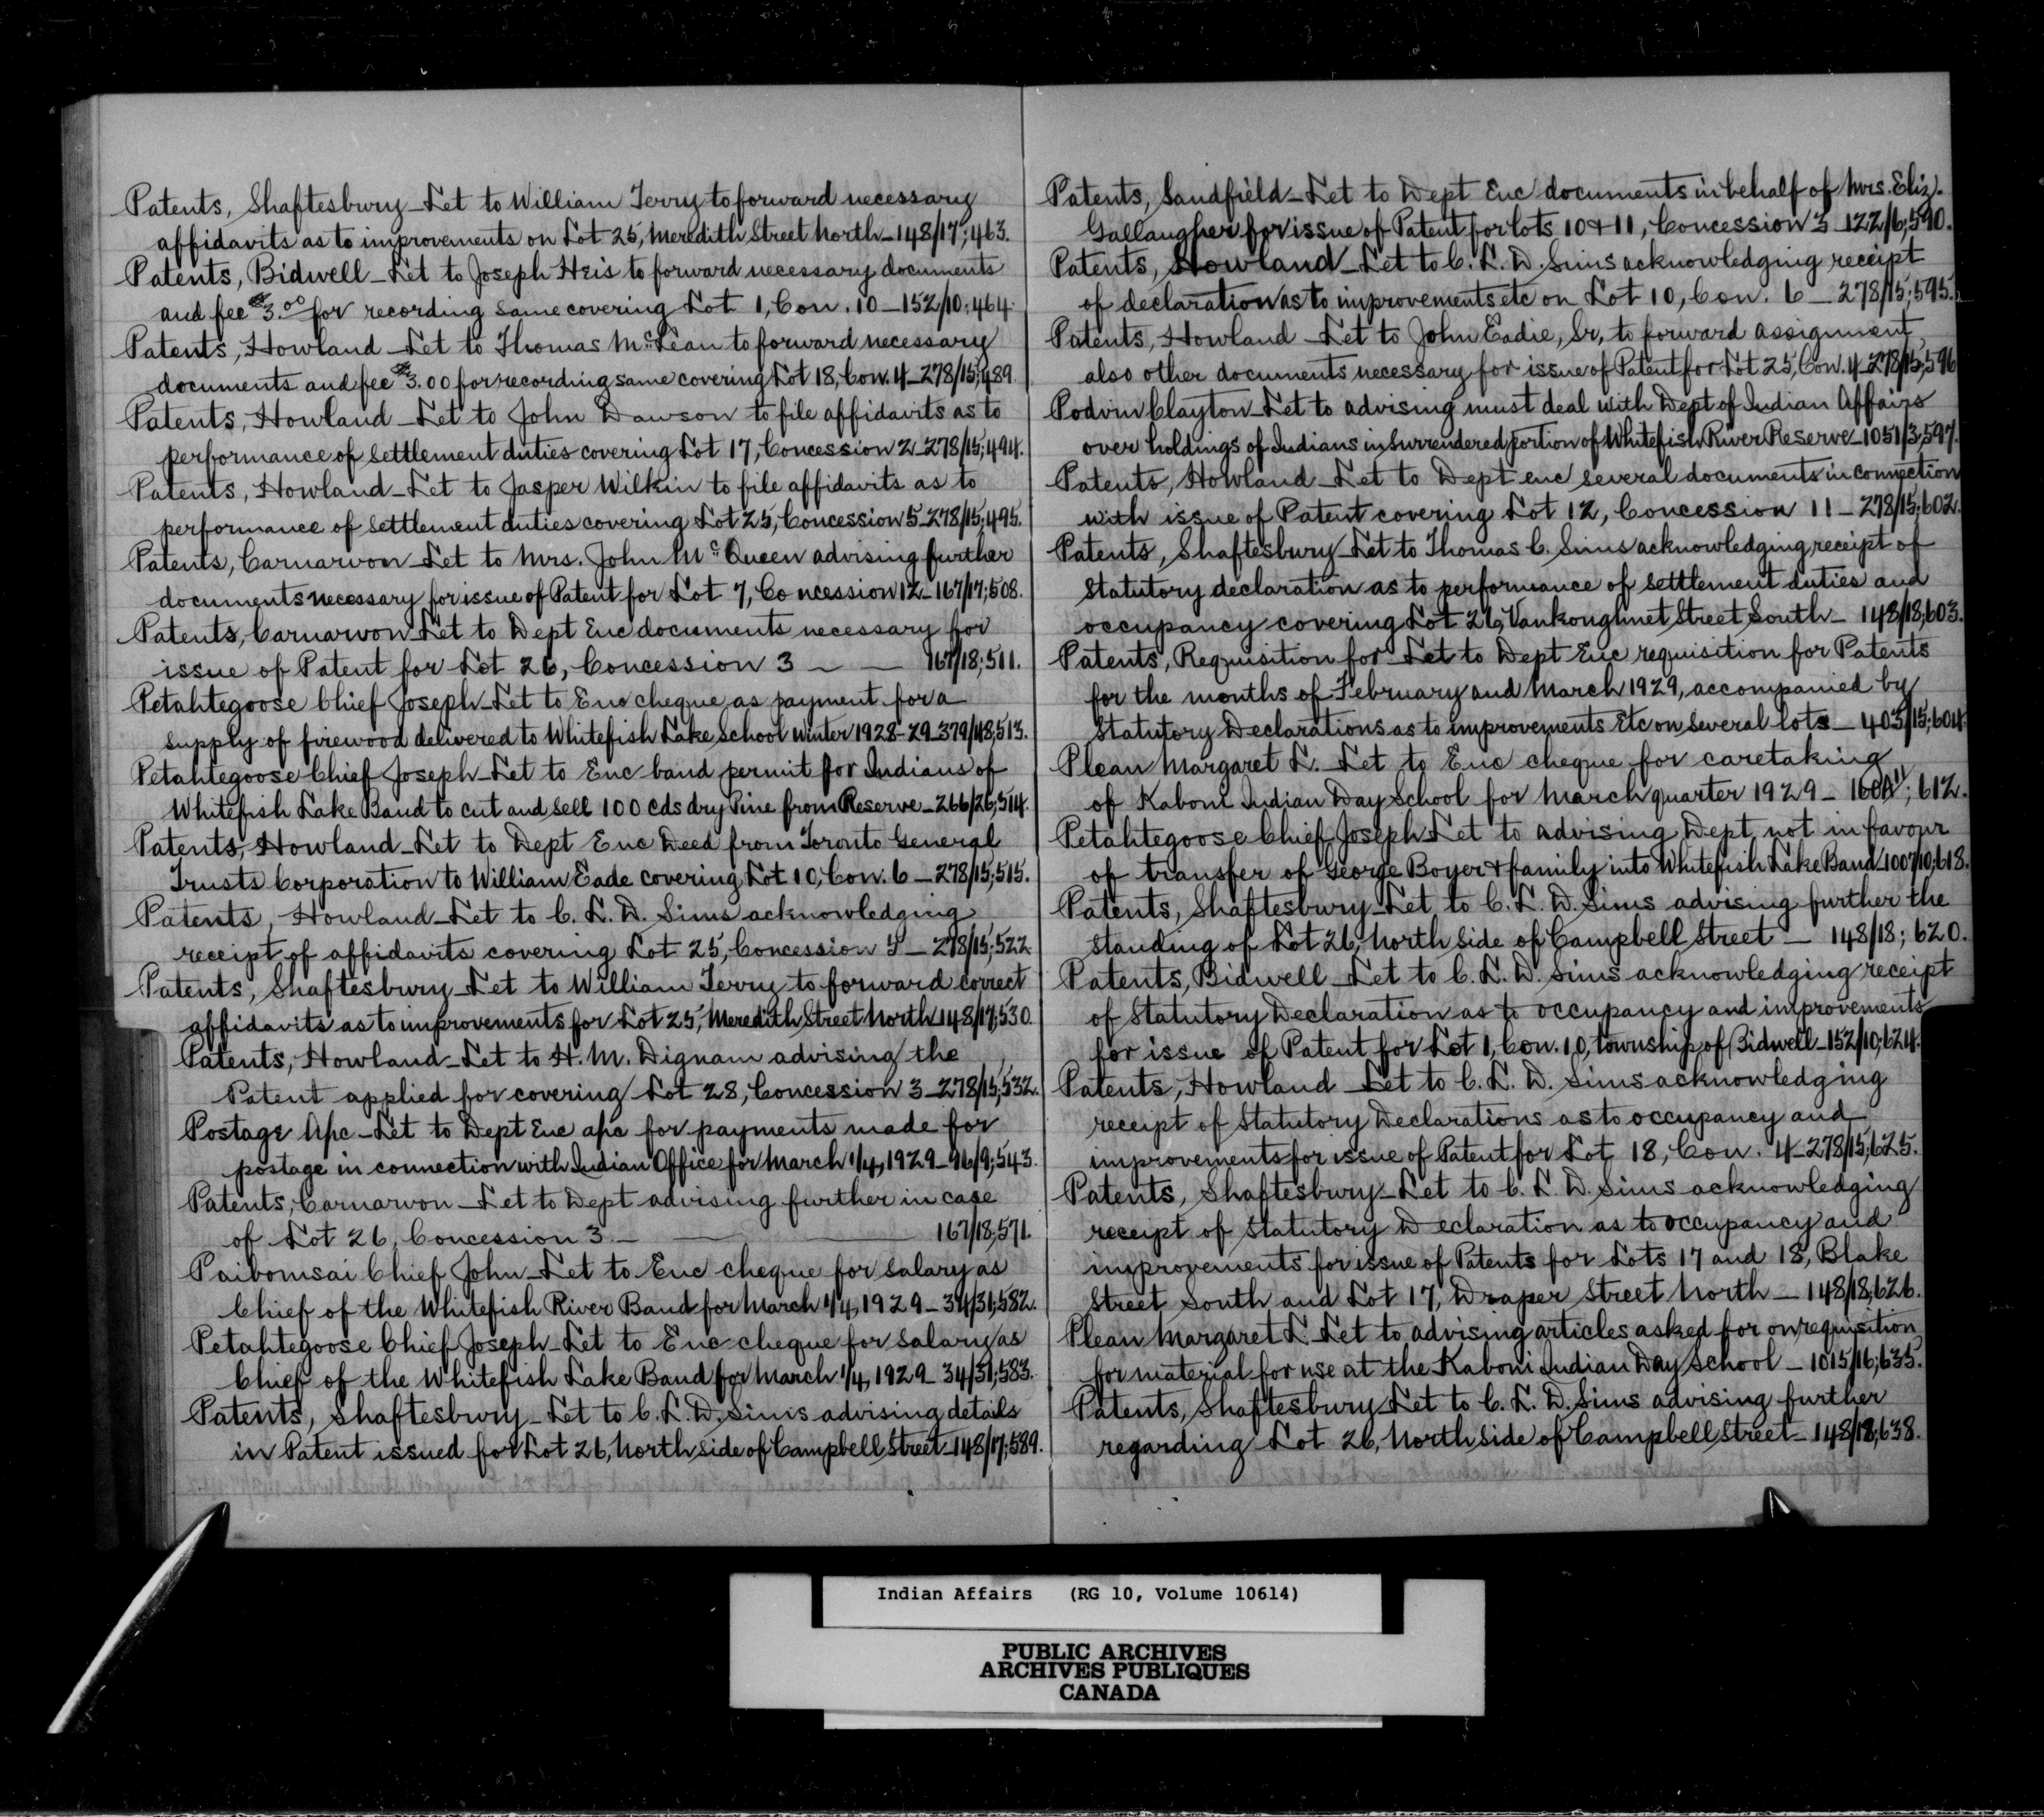 Patents, Shaftesbury_Let to William Terry to forward necessary
affidavits as to improvements on Lot 25, Meredith Street North_148/17;463.
Patents, Bidwell_Let to Joseph Heis to forward necessary documents
and fee $3.00 for recording same covering Lot 1, Con. 10_152/10;464.
Patents, Howland_Let to Thomas McLean to forward necessary
documents and fee $3.00 for recording same covering Lot 18, Con. 4_278/15;489.
Patents, Howland_Let to John Dawson to file affidavits as to
performance of settlement duties covering Lot 17, Concession 2_278/15;494.
Patents, Howland_Let to Jasper Wilkin to file affidavits as to
performance of settlement duties covering Lot 25, Concession 5_278/15;495.
Patents, Carnarvon_Let to Mrs. John McQueen advising further
documents necessary for issue of Patent for Lot 7, Concession 12_167/17;508.
Patents, Carnarvon_Let to Dept Enc documents necessary for
issue of Patent for Lot 26, Concession 3 _ _ 167/18;511.
Petahtegoose Chief Joseph_Let to Enc cheque as payment for a
supply of firewood delivered to Whitefish Lake School Winter 1928-29_379/48;513.
Petahtegoose Chief Joseph_Let to Enc band permit for Indians of
Whitefish Lake Band to cut and sell 100 cds dry Pine from Reserve_266/26;514.
Patents, Howland_Let to Dept Enc Deed from Toronto General
Trusts Corporation to William Eade covering Lot 10, Con. 6_278/15;515.
Patents, Howland_Let to C. L. D. Sims acknowledging
receipt of affidavits covering Lot 25, Concession 5_278/15;522
Patents, Shaftesbury_Let to William Terry to forward correct
affidavits as to improvements for Lot 25, Meredith Street North_148/17;530.
Patents, Howland_Let to H. M. Dignam advising the
Patent applied for covering Lot 28, Concession 3_278/15;532.
Postage A/c_Let to Dept Enc a/c for payments made for
postage in connection with Indian Office for March 1/4, 1929_96/9;543.
Patents, Carnarvon_Let to Dept advising further in case
of Lot 26, Concession 3._ _ 167/18;571.
Paibomsai Chief John_Let to Enc cheque for salary as
Chief of the Whitefish River Band for March 1/4, 1929_34/31;582.
Petahtegoose Chief Joseph_Let to Enc cheque for salary as
Chief of the Whitefish Lake Band for March 1/4, 1929_34/31;583.
Patents, Shaftesbury_Let to C. L. D. Sims advising details
in Patent issued for Lot 26, North side of Campbell Street_148/17;589.
Patents, Sandfield_Let to Dept Enc documents in behalf of Mrs. Eliz.
Gallaugher for issue of Patent for lots 10 & 11, Concession 3_122/6;590.
Patents, Howland_Let to C. L. D. Sims acknowledging receipt
of declaration as to improvements etc on Lot 10, Con. 6_278/15;595.
Patents, Howland_Let to John Eadie, Sr, to forward assignment,
also other documents necessary for issue of Patent for Lot 25, Con. 4_278/15;596
Podvin Clayton_Let to advising must deal with Dept of Indian Affairs
over holdings of Indians in Surrendered portion of Whitefish River Reserve_1051/3;597.
Patents, Howland_Let to Dept enc several documents in connection
with issue of Patent covering Lot 12, Concession 11_278/15;602.
Patents, Shaftesbury_Let to Thomas C. Sims acknowledging receipt of
Statutory declaration as to performance of settlement duties and
occupancy covering Lot 26, Vankoughnet Street South_148/18;603.
Patents, Requisition for_Let to Dept Enc requisition for Patents
for the months of February and March 1929, accompanied by
Statutory Declarations as to improvements Etc on several lots_403/15;604.
Plean Margaret L._Let to Enc cheque for caretaking
of Kaboni Indian Day School for March quarter 1929_160A/11; 612.
Petahtegoose Chief Joseph_Let to advising Dept not in favour
of transfer of George Boyer & family into Whitefish Lake Band_1007/10;618.
Patents, Shaftesbury_Let to C. L. D. Sims advising further the
standing of Lot 26, North side of Campbell Street_148/18; 620.
Patents, Bidwell_Let to C. L. D. Sims acknowledging receipt
of Statutory Declaration as to occupancy and improvements
for issue of Patent for Lot 1, Con. 10, township of Bidwell_152/10;624.
Patents, Howland_Let to C. L. D. Sims acknowledging
receipt of Statutory Declarations as to occupancy and
improvements for issue of Patent for Lot 18, Con. 4_278/15;625.
Patents, Shaftesbury_Let to C. L. D. Sims acknowledging
receipt of Statutory Declaration as to occupancy and
improvements for issue of Patents for Lots 17 and 18, Blake
Street South and Lot 17, Draper Street North_148/18;626.
Plean Margaret L_Let to advising articles asked for on requisition
for material for use at the Kaboni Indian Day School_1015/16;635.
Patents, Shaftesbury_Let to C. L. D. Sims advising further
regarding Lot 26, North side of Campbell Street_148/18;638.
Indian Affairs (RG 10, Volume 10614)
PUBLIC ARCHIVES
ARCHIVES PUBLIQUES
CANADA